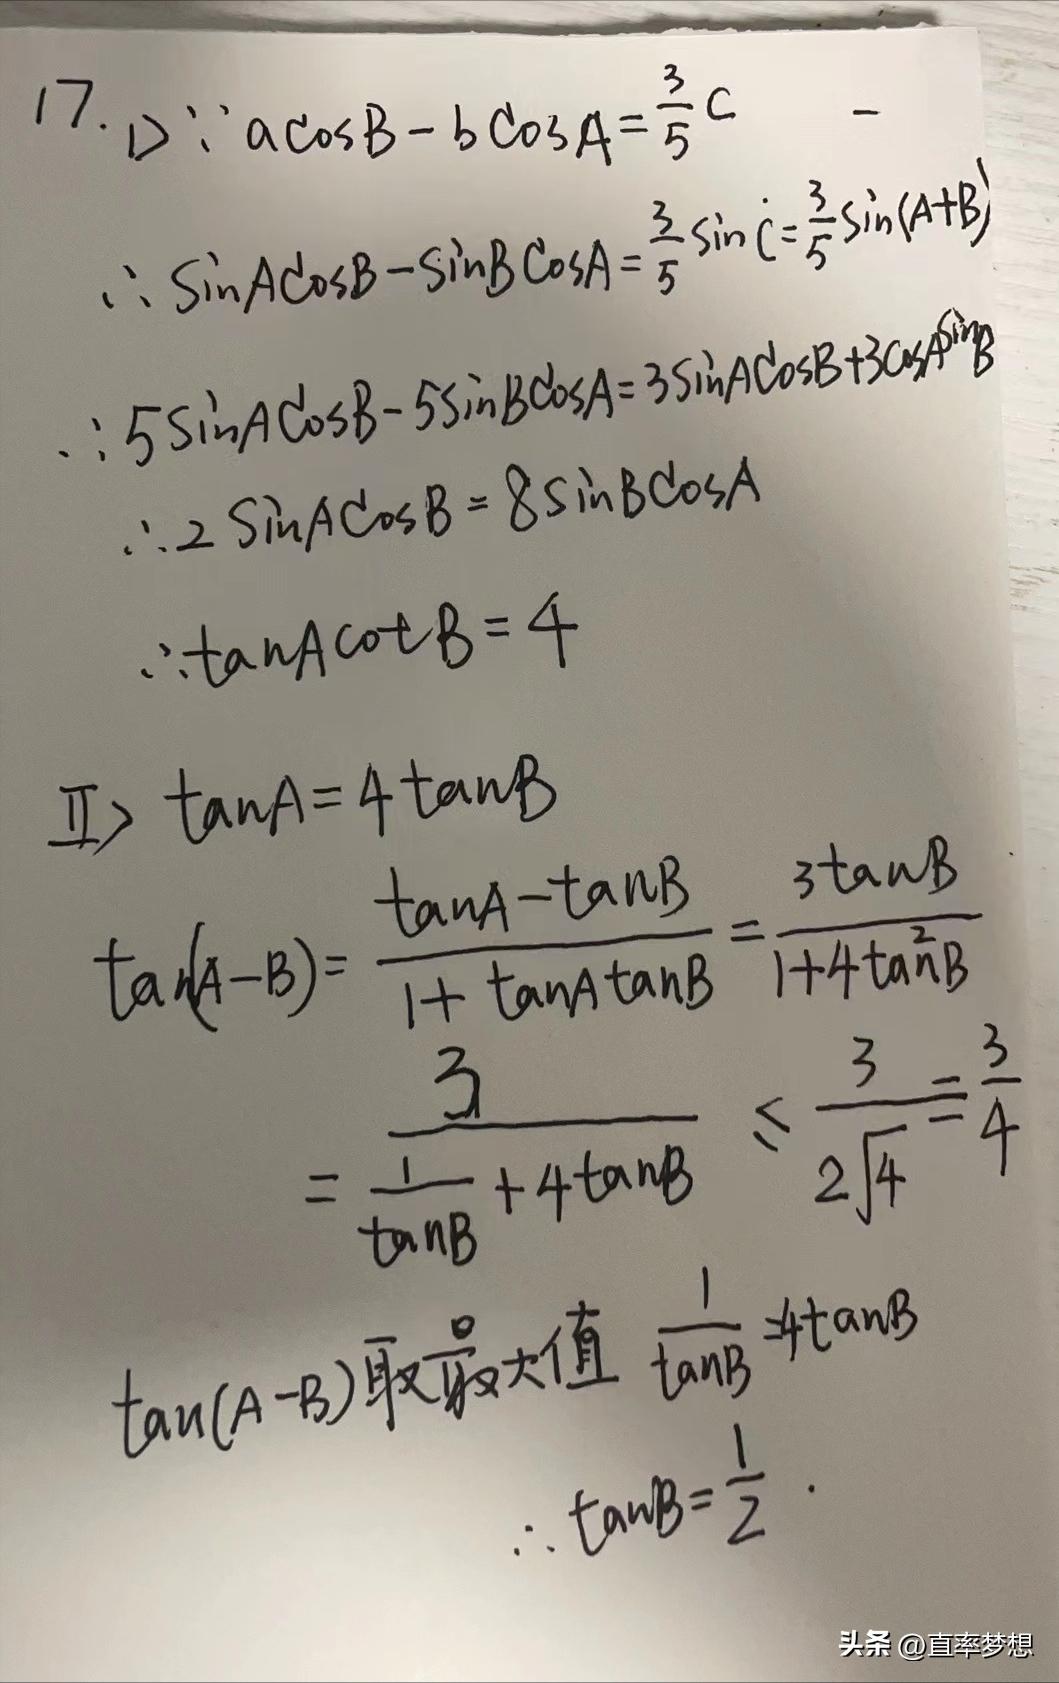 17. I> ∵ acosB-bcosA=3/5 c -
∴ sinAcosB-sinBcosA=3/5 sinC=3/5 sin(A+B)
∴ 5sinAcosB-5sinBcosA=3sinAcosB+3cosAsinB
∴ 2sinAcosB=8sinBcosA
∴ tanAcotB=4
II> tanA=4tanB
tan(A-B)=(tanA-tanB)/(1+tanAtanB)=3tanB/(1+4tan²B)
=3/(1/tanB+4tanB) ≤ 3/(2√4)=3/4
tan(A-B)取最大值 1/tanB=4tanB
∴ tanB=1/2.
头条 @直率梦想